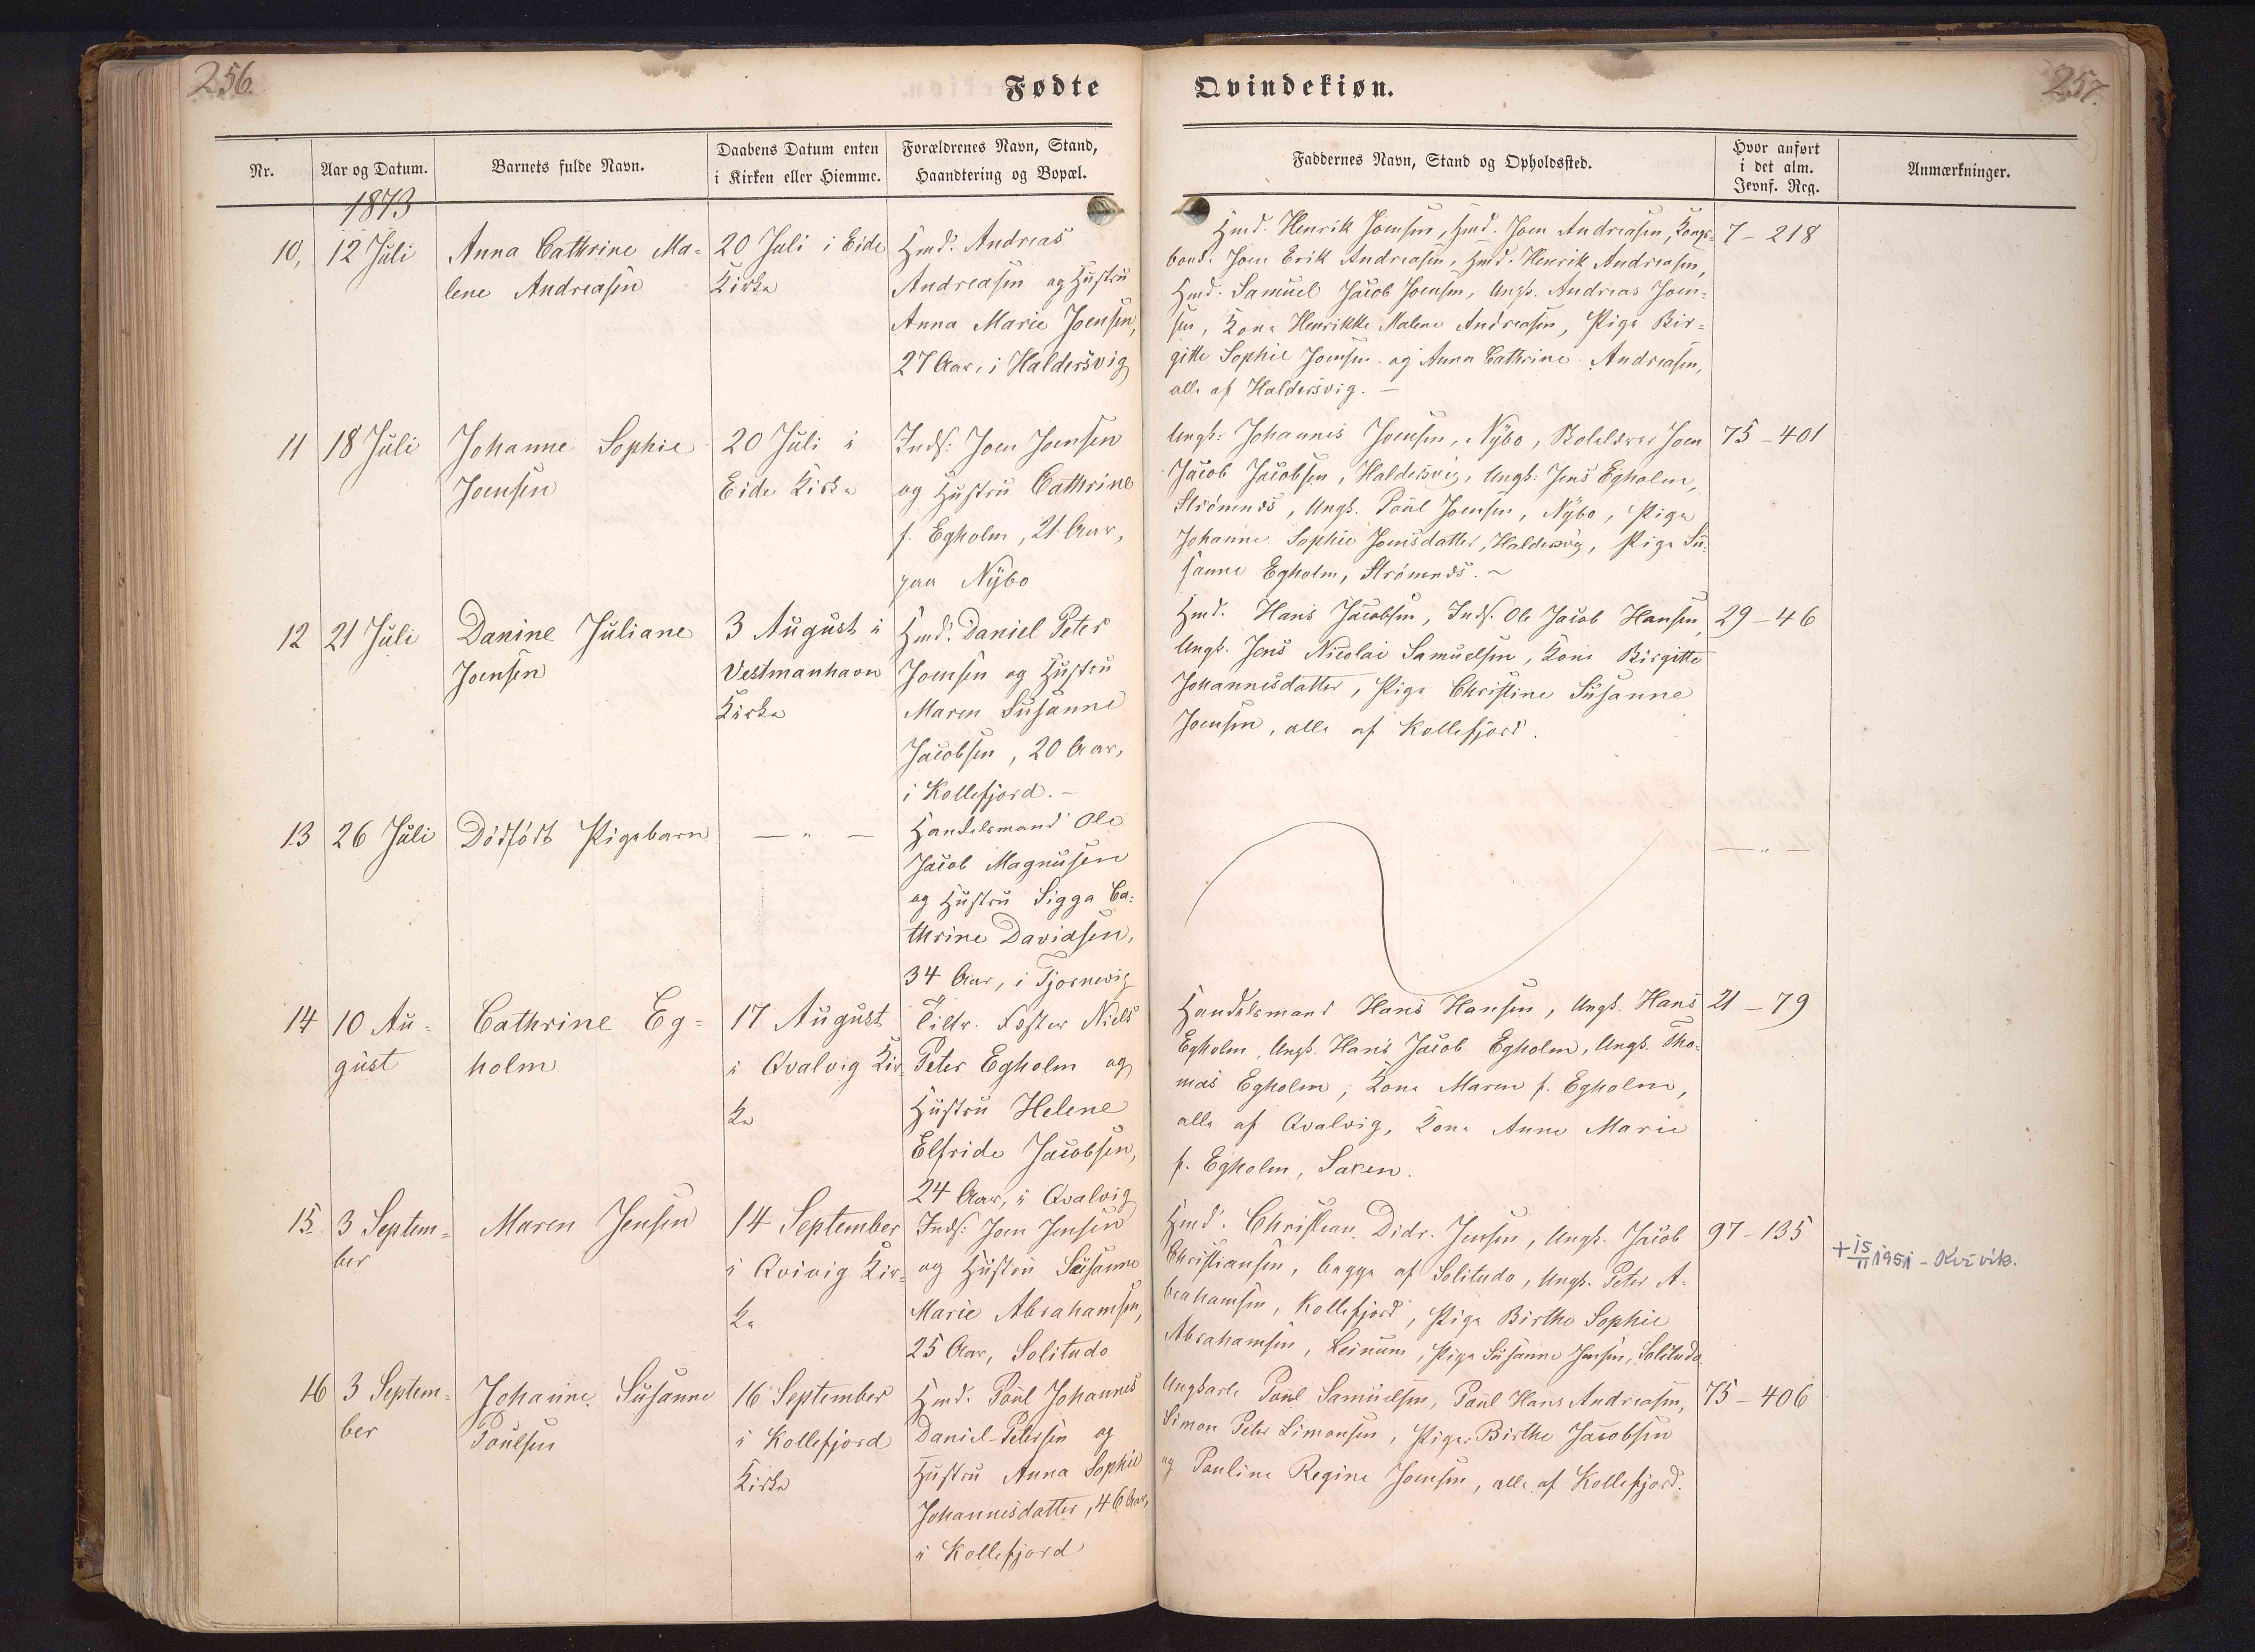 256.
Fødte
Qvindekiøn.
257.
Nr.
Aar og Datum.
Barnets fulde Navn.
Daabens Datum enten
i Kirken eller Hiemme.
Forældrenes Navn, Stand,
Haandtering og Bopæl.
Faddernes Navn, Stand og Opholdssted.
Hvor anført
i det alm.
Jevnf. Reg.
Anmærkninger.
1873
10,
12 Juli
Anna Cathrine Ma-
lene Andreasen
20 Juli i Eide
Kirke
Hmd. Andreas
Andreasen og Hustru
Anna Marie Joensen,
27 Aar, i Haldersvig
Hmd. Henrik Joensen, Hmd. Joen Andreasen, Kongs-
bond. Joen Erik Andreasen, Hmd. Henrik Andreasen,
Hmd. Samuel Jacob Joensen, Ungk. Andreas Joen-
sen, Kone Henrikke Malene Andreasen, Pige Bir-
gitte Sophie Joensen og Anna Cathrine Andreasen,
alle af Haldersvig. —
7 - 218
11
18 Juli
Johanne Sophie
Joensen
20 Juli i
Eide Kirke
Inds: Joen Joensen
og Hustru Cathrine
f. Egholm, 21 Aar,
paa Nybo
Ungk: Johannes Joensen, Nybo, Joen
Jacob Jacobsen, Haldersvig, Ungk: Jens Egholm,
Strömnæs, Ungk. Poul Joensen, Nybo, Pige
Johanne Sophie Joensdatter, Haldersvig, Pige Su-
sanne Egholm, Strömnæs. ~
75 - 401
12
21 Juli
Danine Juliane
Joensen
3 August i
Vestmanhavn
Kirke
Hmd. Daniel Peter
Joensen og Hustru
Maren Susanne
Jacobsen, 20 Aar,
i Kollefjord. —
Hmd. Hans Jacobsen, Inds. Ole Jacob Hansen,
Ungk. Jens Nicolai Samuelsen, Kone Birgitte
Johannesdatter, Pige Christine Susanne
Joensen, alle af Kollefjord.
29 - 46
13
26 Juli
Dödfödt Pigebarn
— " —
Handelsmand Ole
Jacob Magnusen
og Hustru Sigga Ca-
thrine Davidsen,
34 Aar, i Tjornevig
— " —
14
10 Au-
gust
Cathrine Eg-
holm
17 August
i Qvalvig Kir-
ke
Niels
Peter Egholm og
Hustru Helene
Elfride Jacobsen,
24 Aar, i Qvalvig
Handelsmand Hans Hansen, Ungk. Hans
Egholm, Ungk. Hans Jacob Egholm, Ungk. Tho-
mas Egholm, Kone Maren f. Egholm,
alle af Qvalvig, Kone Anne Marie
f. Egholm, Saxen.
21 - 79
15
3 Septem-
ber
Maren Jensen
14 September
i Qvivig Kir-
ke
Inds: Joen Jensen
og Hustru Susanne
Marie Abrahamsen,
25 Aar, Solitude
Hmd. Christian Didr. Jensen, Ungk. Jacob
Christiansen, begge af Solitude, Ungk. Peter A-
brahamsen, Kollefjord, Pige Birthe Sophie
Abrahamsen, Leinum, Pige Susanne Jensen, Solitude
97 - 135
+ 15/11 1951 - Kvívík.
16
3 Septem-
ber
Johanne Susanne
Poulsen
16 September
i Kollefjord
Kirke
Hmd. Poul Johannes
Daniel-Petersen og
Hustru Anna Sophie
Johannesdatter, 46 Aar,
i Kollefjord
Ungkarle Poul Samuelsen, Poul Hans Andreasen,
Simon Peter Simonsen, Piger Birthe Jacobsen
og Pauline Regine Joensen, alle af Kollefjord.
75 - 406